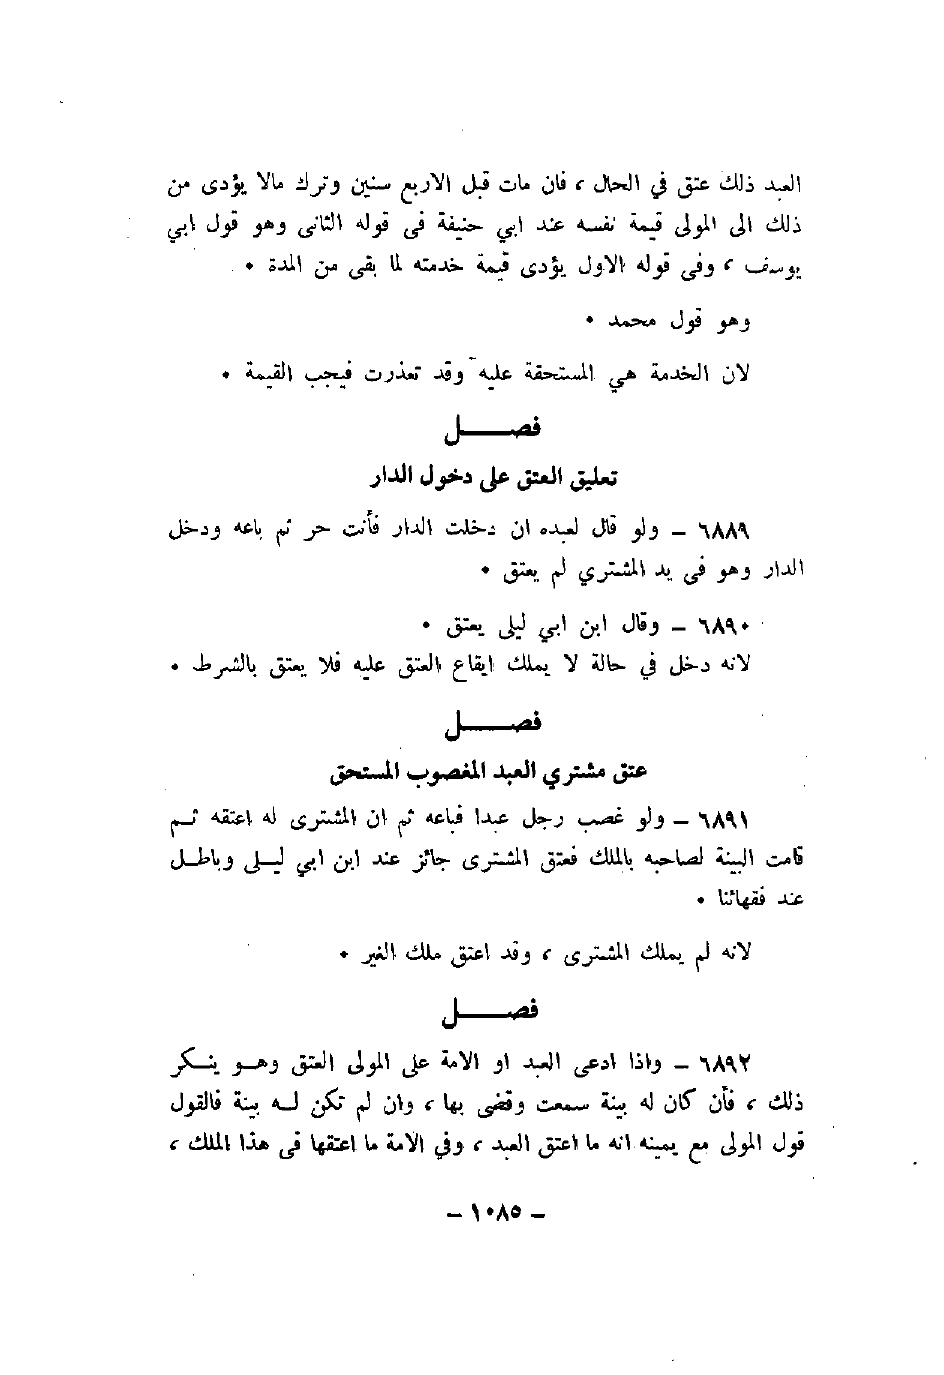 العبد ذلك عتق في الحال ، فان مات قبل الاربع سنين وترك مالا يؤدى من
ذلك الى المولى قيمة نفسه عند ابي حنيفة فى قوله الثانى وهو قول ابي
يوسف ، وفى قوله الاول يؤدى قيمة خدمته لما بقى من المدة •
وهو قول محمد •
لان الخدمة هي المستحقة عليه وقد تعذرت فيجب القيمة •
فصــــل
تعليق العتق على دخول الدار
٦٨٨٩ – ولو قال لعبده ان دخلت الدار فأنت حر ثم باعه ودخل
الدار وهو فى يد المشتري لم يعتق •
٦٨٩٠ – وقال ابن ابي ليلى يعتق •
لانه دخل في حالة لا يملك ايقاع العتق عليه فلا يعتق بالشرط •
فصــــل
عتق مشتري العبد المغصوب المستحق
٦٨٩١ – ولو غصب رجل عبدا فباعه ثم ان المشترى له اعتقه ثــم
قامت البينة لصاحبه بالملك فعتق المشترى جائز عند ابن ابي ليــلى وباطــل
عند فقهائنا •
لانه لم يملك المشترى ، وقد اعتق ملك الغير •
فصــــل
٦٨٩٢ – واذا ادعى العبد او الامة على المولى العتق وهــو ينــكر
ذلك ، فأن كان له بينة سمعت وقضى بها ، وان لم تكن لــه بينة فالقول
قول المولى مع يمينه انه ما اعتق العبد ، وفي الامة ما اعتقها فى هذا الملك ،
– ١٠٨٥ –